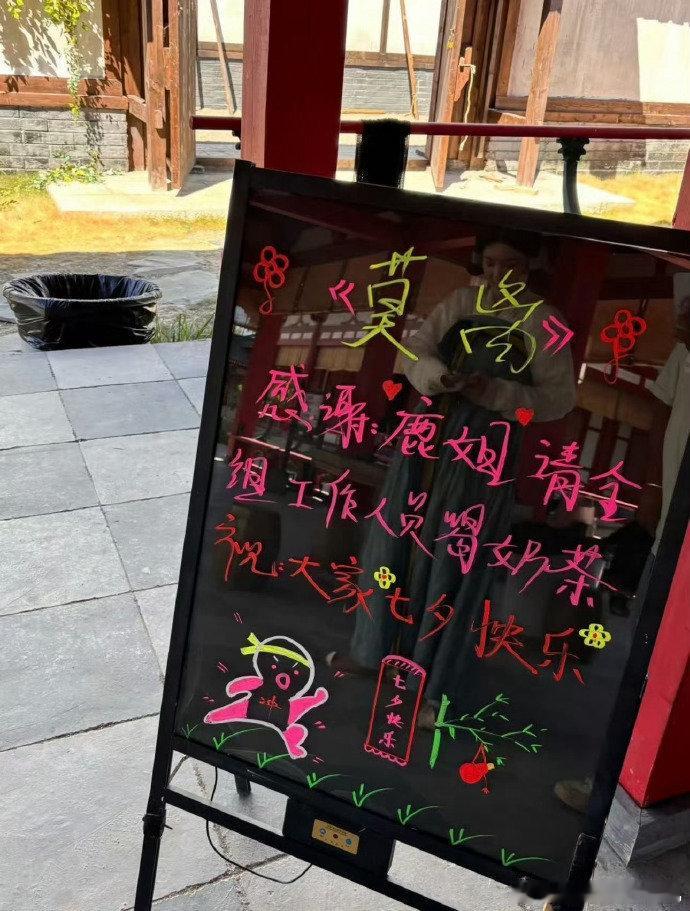 《莫离》
感谢:鹿姐 请全
组工作人员喝奶茶
祝:大家七夕快乐
冲
七夕快乐